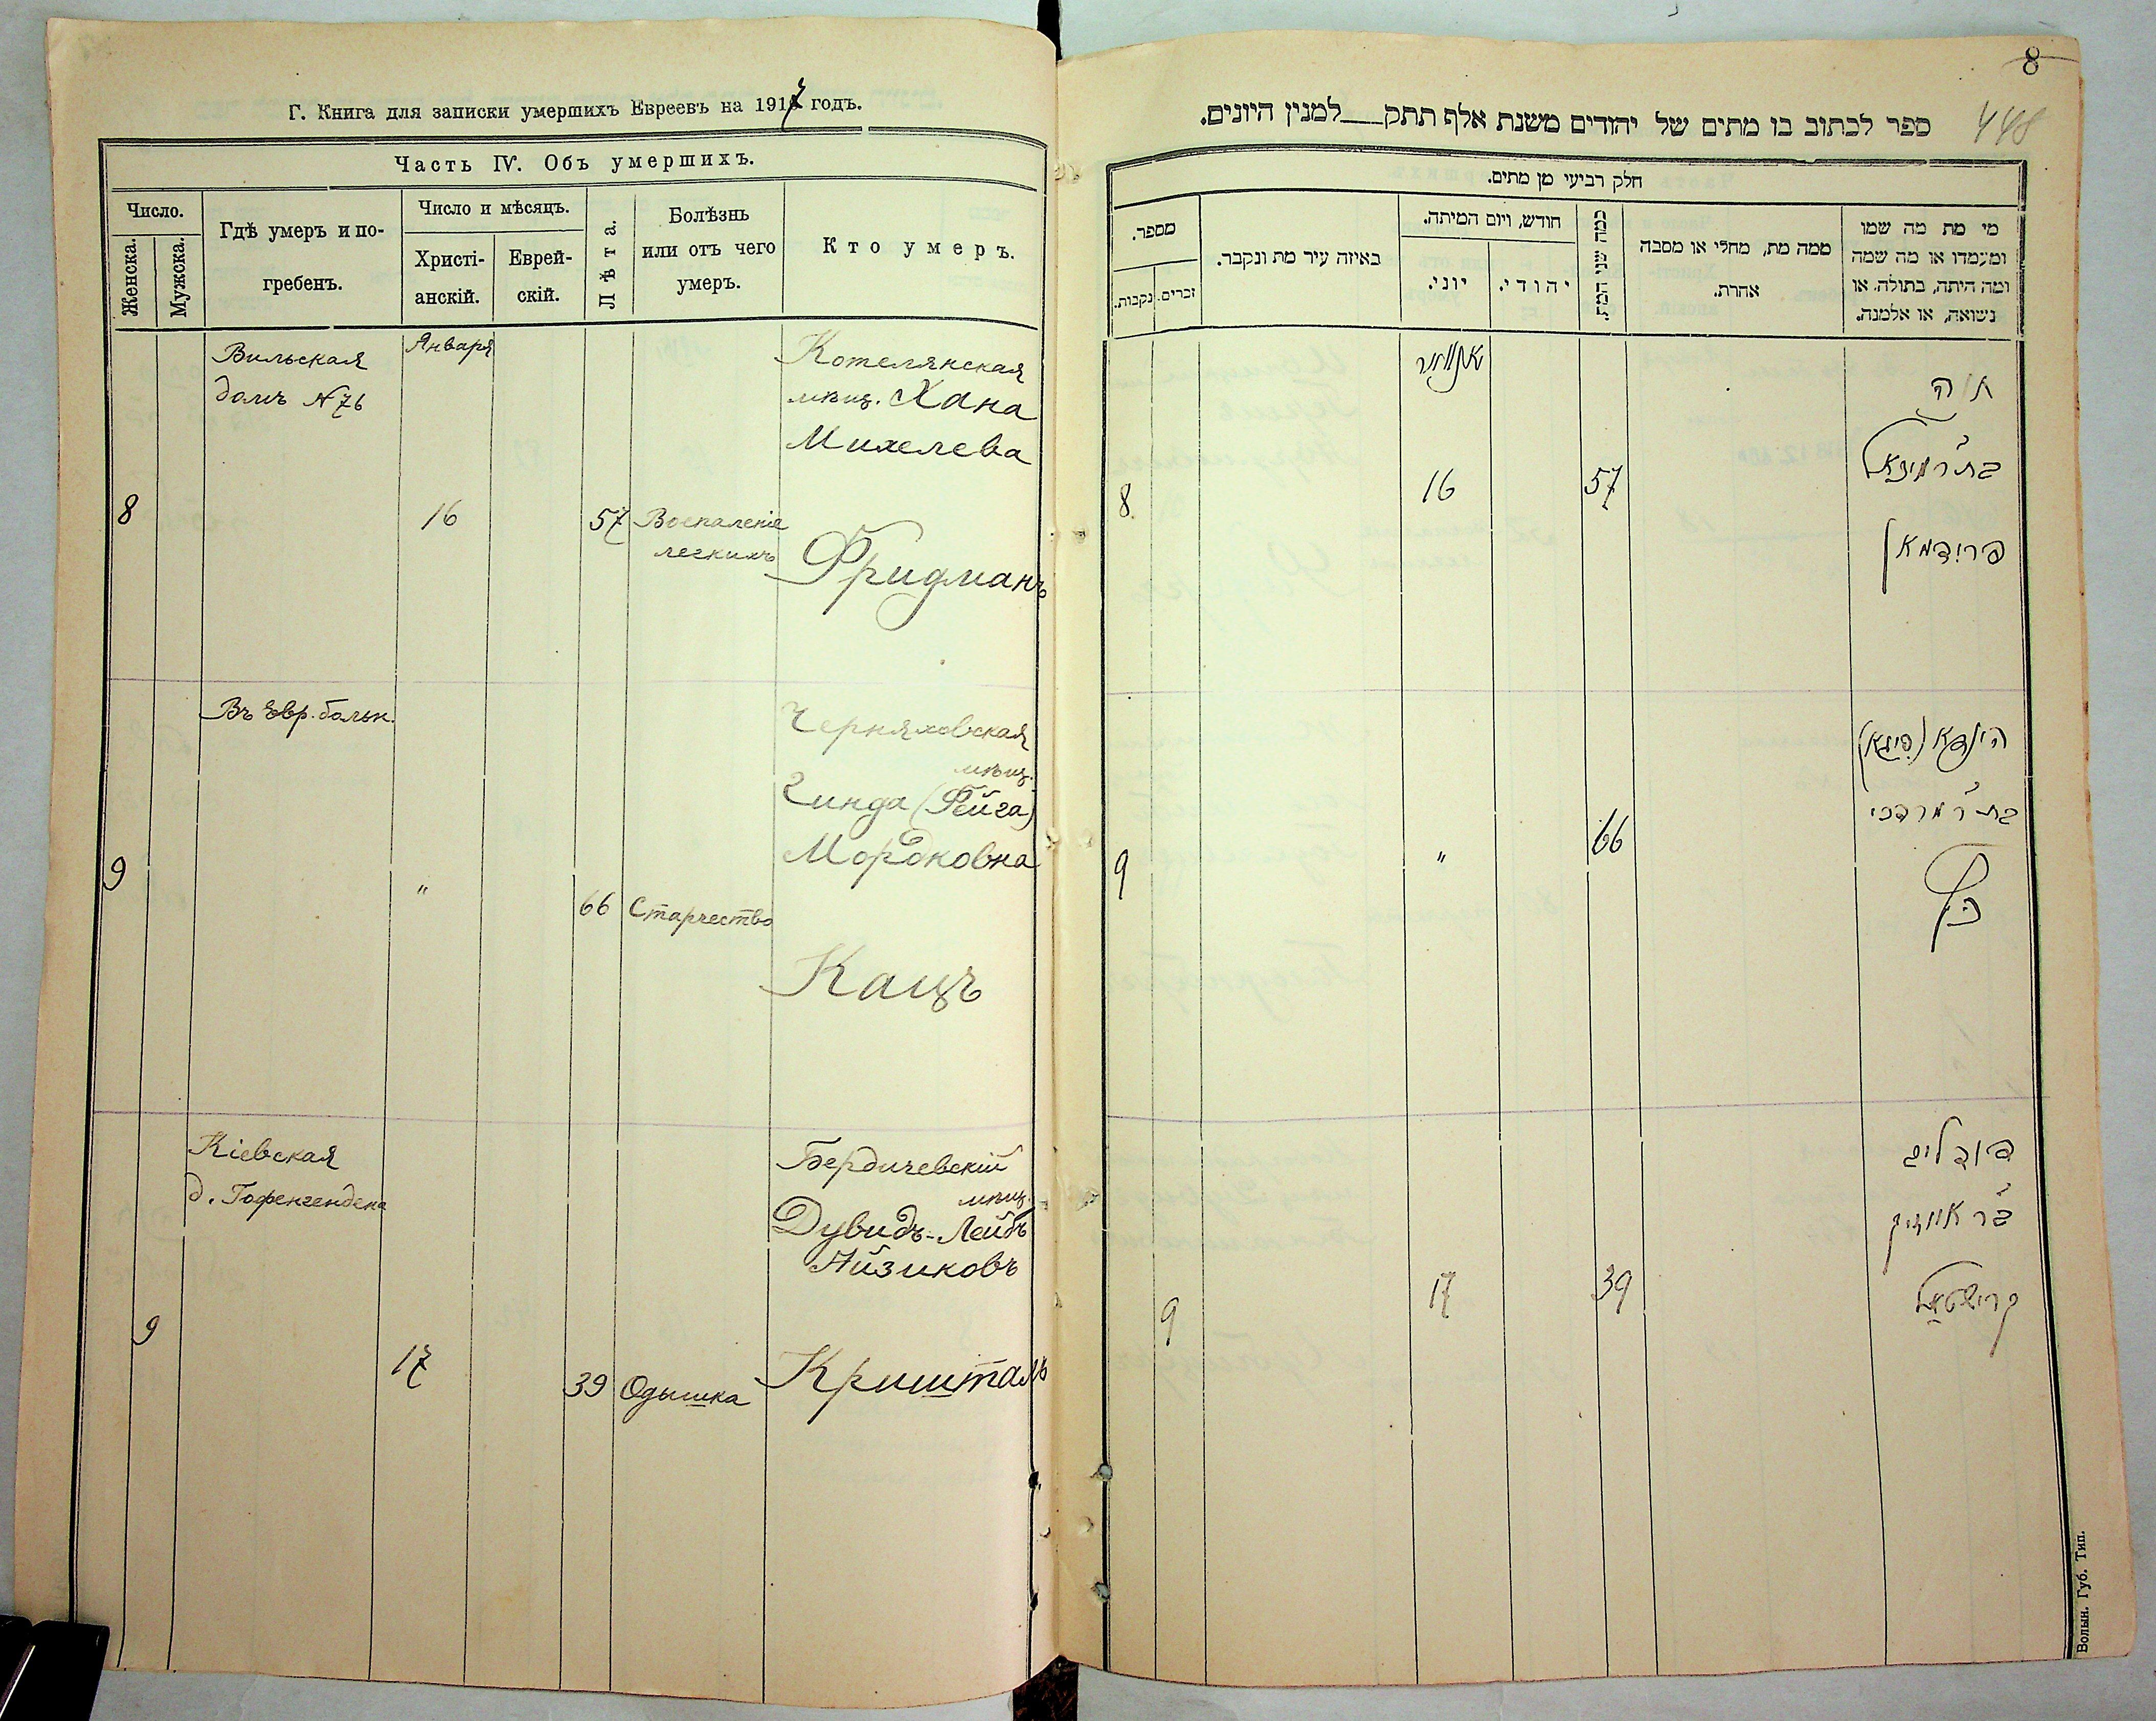 Г. Книга для записки умершихъ Евреевъ на 1917 годъ.
Часть IV. Объ умершихъ.
Число.
Женска.
Мужска.
Гдѣ умеръ и по-
гребенъ.
Число и мѣсяцъ.
Христі-
анскій.
Еврей-
скій.
Лѣта.
Болѣзнь
или отъ чего
умеръ.
Кто умеръ.
Вильская
домъ №76
Января
Котелянская
мѣщ. Хана
Михелева
8
16
57
Воспаленіе
легкихъ
Фридманъ
Въ Евр. больн.
Черняховская
мѣщ.
Гинда (Фейга)
Мордковна
9
"
66
Старчество
Кацъ
Кіевская
д. Гофенгендена
Бердичевскій
мѣщ.
Дувидъ-Лейбъ
Айзиковъ
9
17
39
Одышка
Кришталь
8
448
ספר לכתוב בו מתים של יהודים משנת אלף תתק___למנין היונים.
חלק רביעי מן מתים.
מספר.
נקבות.
זכרים.
באיזה עיר מת ונקבר.
חודש, ויום המיתה.
יוני.
יהודי.
כמה שני המת.
ממה מת, מחלי או מסבה
אחרת.
מי מת מה שמו
ומעמדו או מה שמה
ומה היתה, בתולה או
נשואה, או אלמנה.
יאנואר
חנה
בת ר' מיכאל
פרידמאן
8
16
57
הינדא (פיגא)
בת ר' מרדכי
כץ
9
"
66
דוד ליב
בר' אייזיק
קרישטאל
9
17
39
Волын. Губ. Тип.